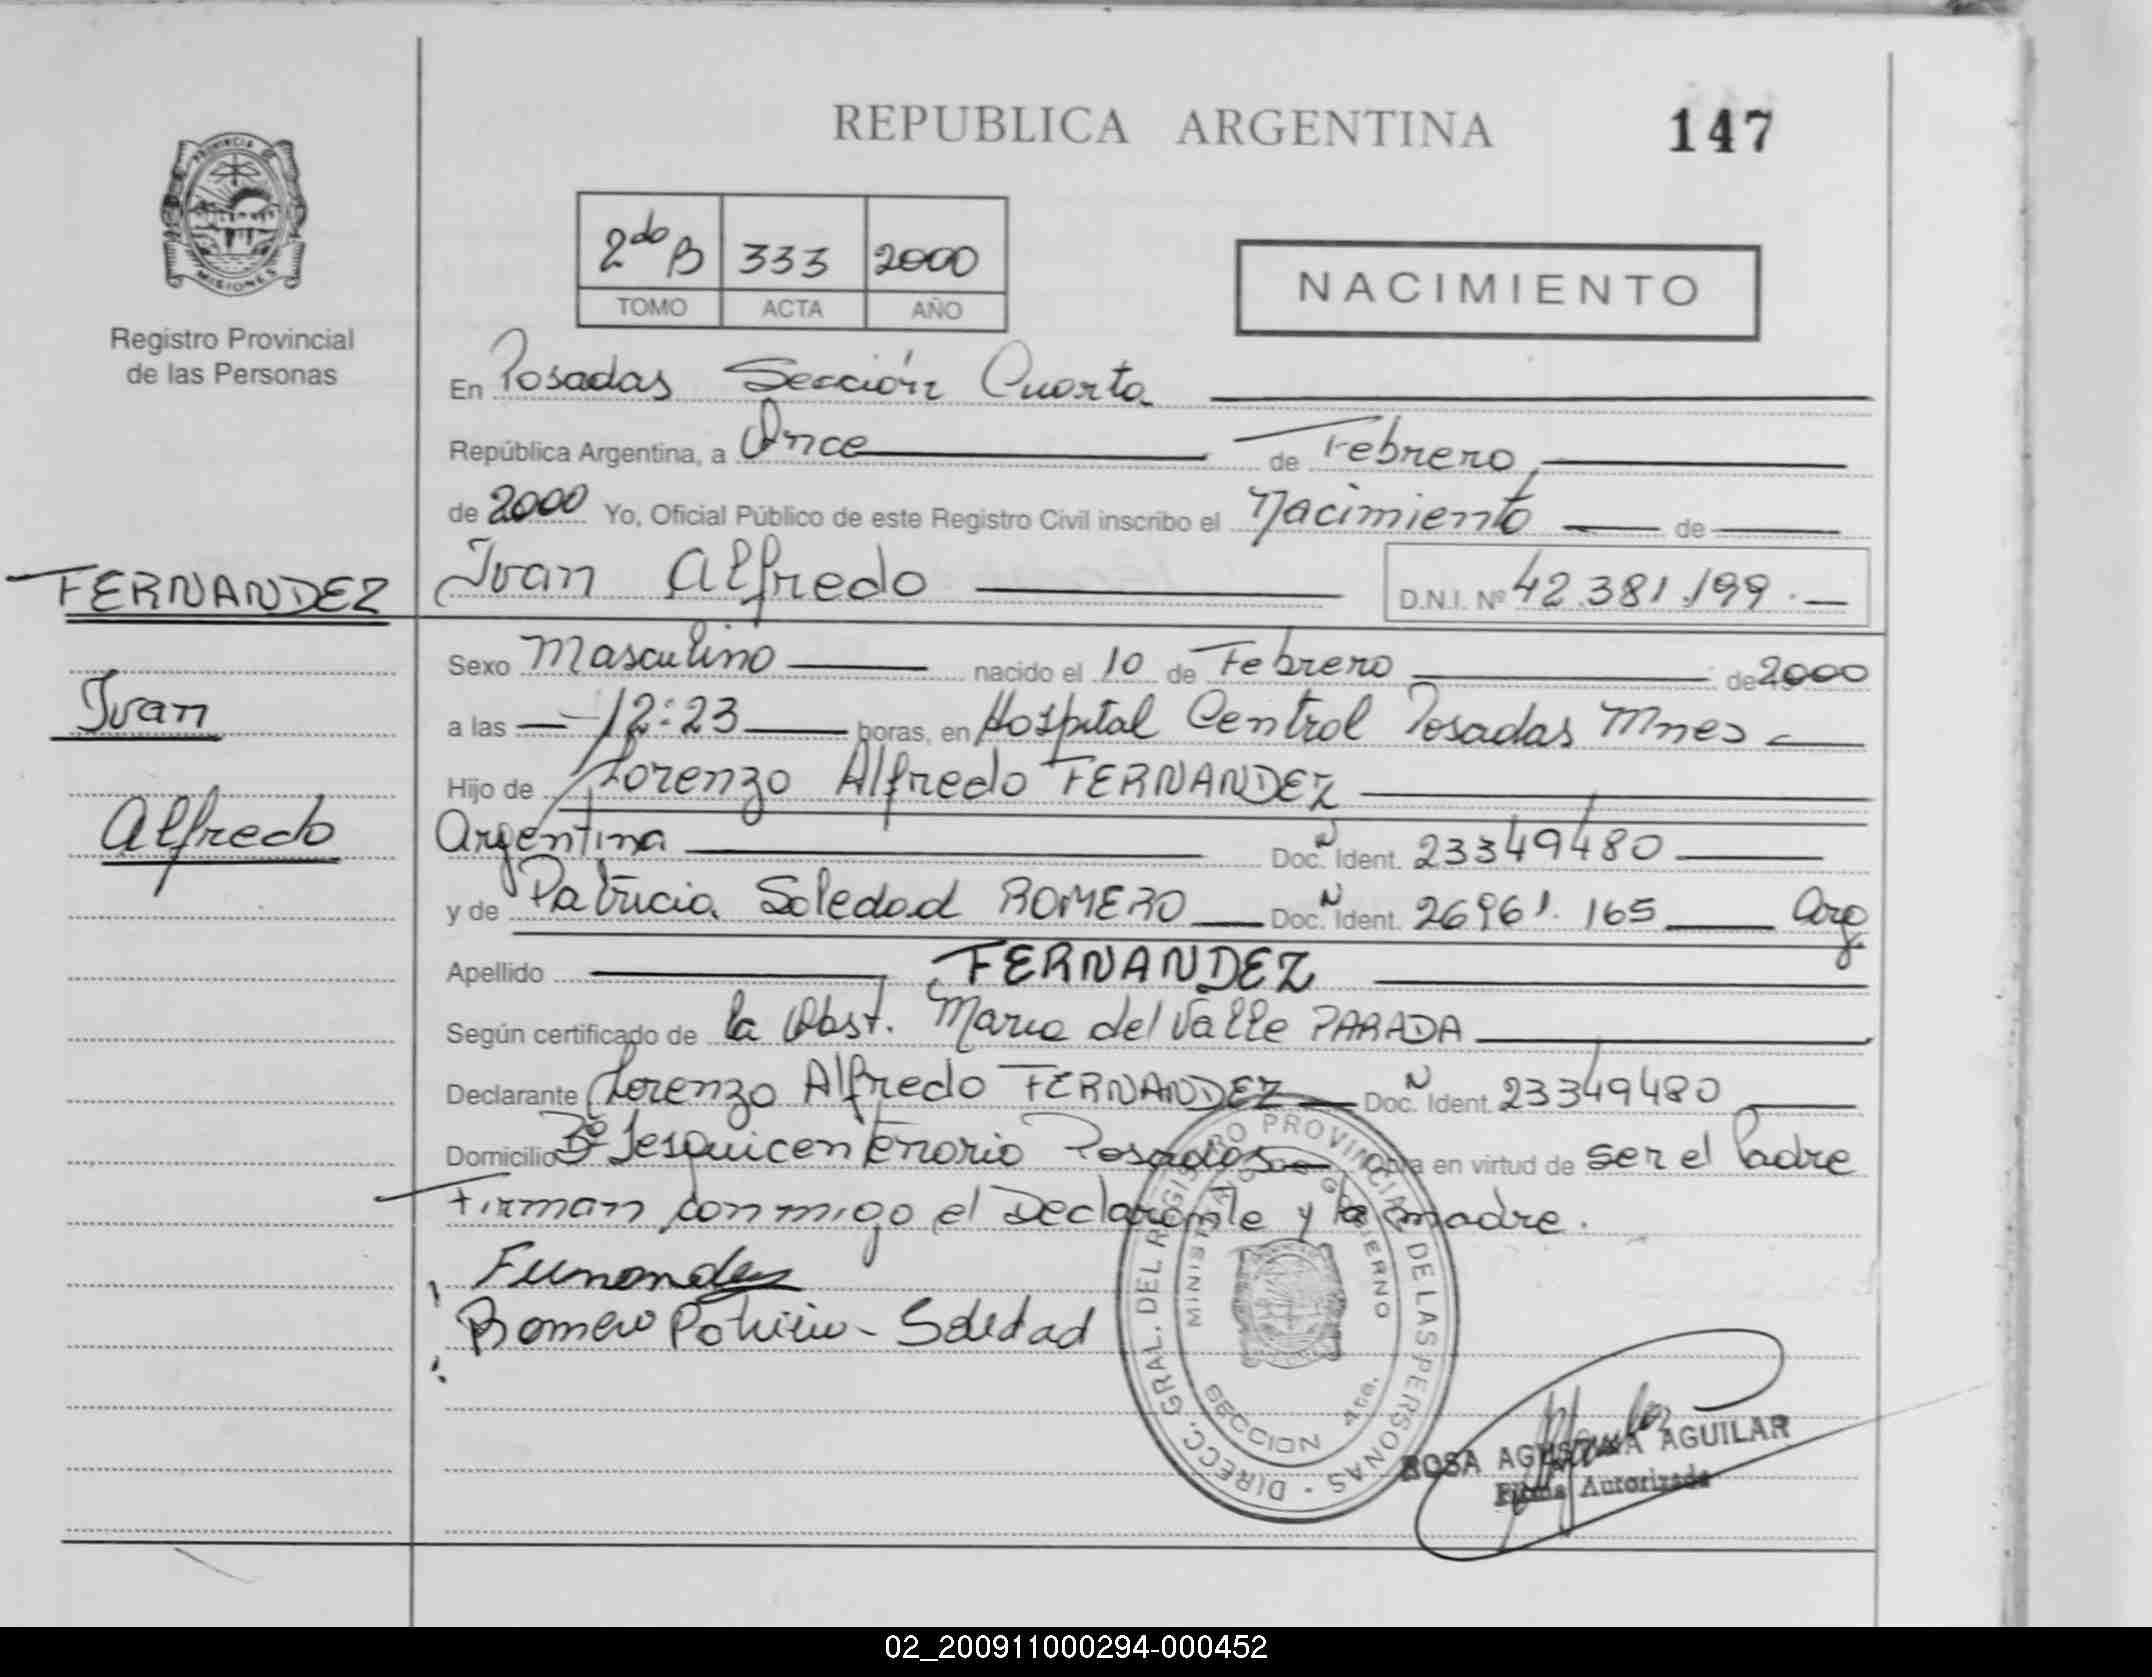 REPUBLICA ARGENTINA
147
PROVINCIA DE
MISIONES
Registro Provincial
de las Personas
2do B 333 2000
TOMO ACTA AÑO
NACIMIENTO
En Posadas Sección Cuarta
República Argentina, a Once de Febrero,
de 2000 Yo, Oficial Público de este Registro Civil inscribo el Nacimiento de
FERNANDEZ
Ivan Alfredo D.N.I. Nº 42.381.199.
Sexo Masculino nacido el 10 de Febrero de 2000
Ivan
a las 12:23 horas, en Hospital Central Posadas Mnes
Hijo de Lorenzo Alfredo FERNANDEZ
Alfredo
Argentina Doc. N Ident. 23349480
y de Patricia Soledad ROMERO Doc. N Ident. 26961.165 Arg.
Apellido FERNANDEZ
Según certificado de la Obst. Maria del Valle PARADA
Declarante Lorenzo Alfredo FERNANDEZ Doc. N Ident. 23349480
Domicilio Bº Sesquicentenario Posadas Obra en virtud de ser el Padre
Firman conmigo el Declarante y la madre.
Fernandez
Romero Patricia - Soledad
DIRECC. GRAL. DEL REGISTRO PROVINCIAL DE LAS PERSONAS -
MINISTERIO GOBIERNO
SECCION 4ta.
ROSA AGUSTINA AGUILAR
Firma Autorizada
02_200911000294-000452